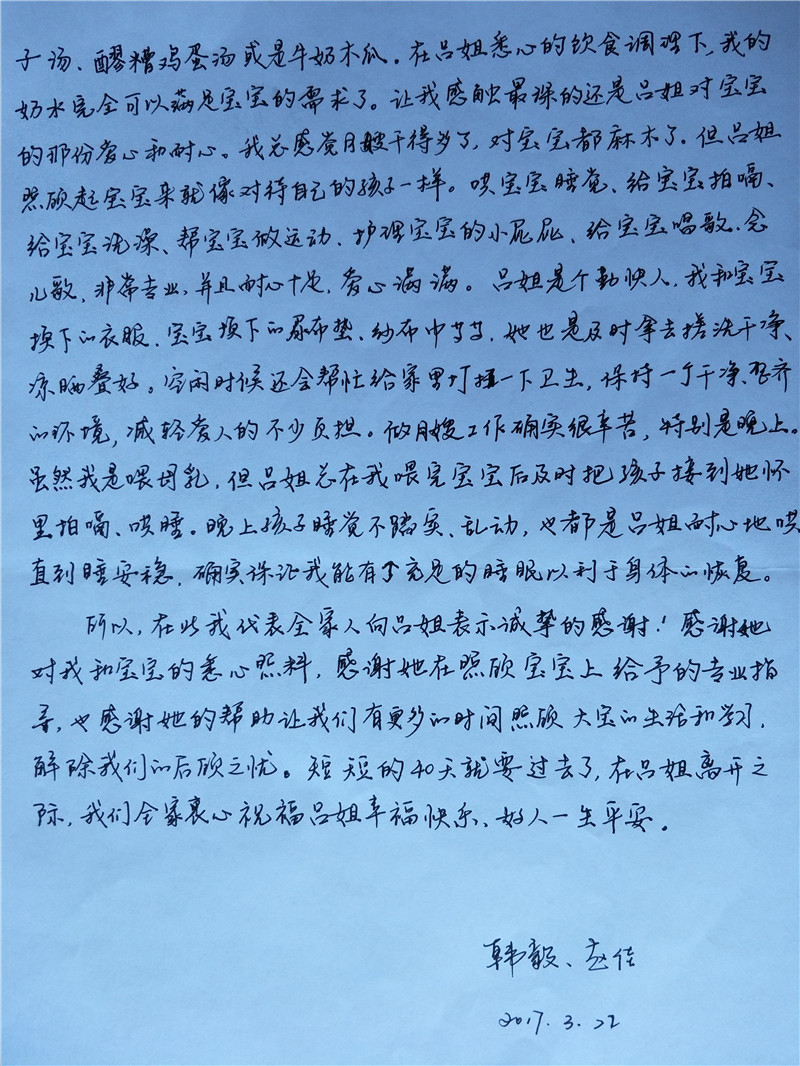 子汤、醪糟鸡蛋汤或是牛奶木瓜。在吕姐悉心的饮食调理下，我的
奶水完全可以满足宝宝的需求了。让我感触最深的还是吕姐对宝宝
的那份爱心和耐心。我总感觉月嫂干得多了，对宝宝都麻木了。但吕姐
照顾起宝宝来就像对待自己的孩子一样。哄宝宝睡觉、给宝宝拍嗝、
给宝宝洗澡、帮宝宝做运动、护理宝宝的小屁屁、给宝宝唱歌、念
儿歌，非常专业，并且耐心十足，爱心满满。吕姐是个勤快人，我和宝宝
换下的衣服、宝宝换下的尿布垫、纱布巾等等，她也是及时拿去搓洗干净、
凉晒叠好。空闲时候还会帮忙给家里打扫一下卫生，保持一个干净、整齐
的环境，减轻爱人的不少负担。做月嫂工作确实很辛苦，特别是晚上。
虽然我是喂母乳，但吕姐总在我喂完宝宝后及时把孩子接到她怀
里拍嗝、哄睡。晚上孩子睡觉不踏实、乱动，也都是吕姐耐心地哄
直到睡安稳，确实保证我能有了充足的睡眠以利于身体的恢复。
所以，在此我代表全家人向吕姐表示诚挚的感谢！感谢她
对我和宝宝的悉心照料，感谢她在照顾宝宝上给予的专业指
导，也感谢她的帮助让我们有更多的时间照顾大宝的生活和学习，
解除我们的后顾之忧。短短的40天就要过去了，在吕姐离开之
际，我们全家衷心祝福吕姐幸福快乐、好人一生平安。
韩毅、赵佳
2017.3.22